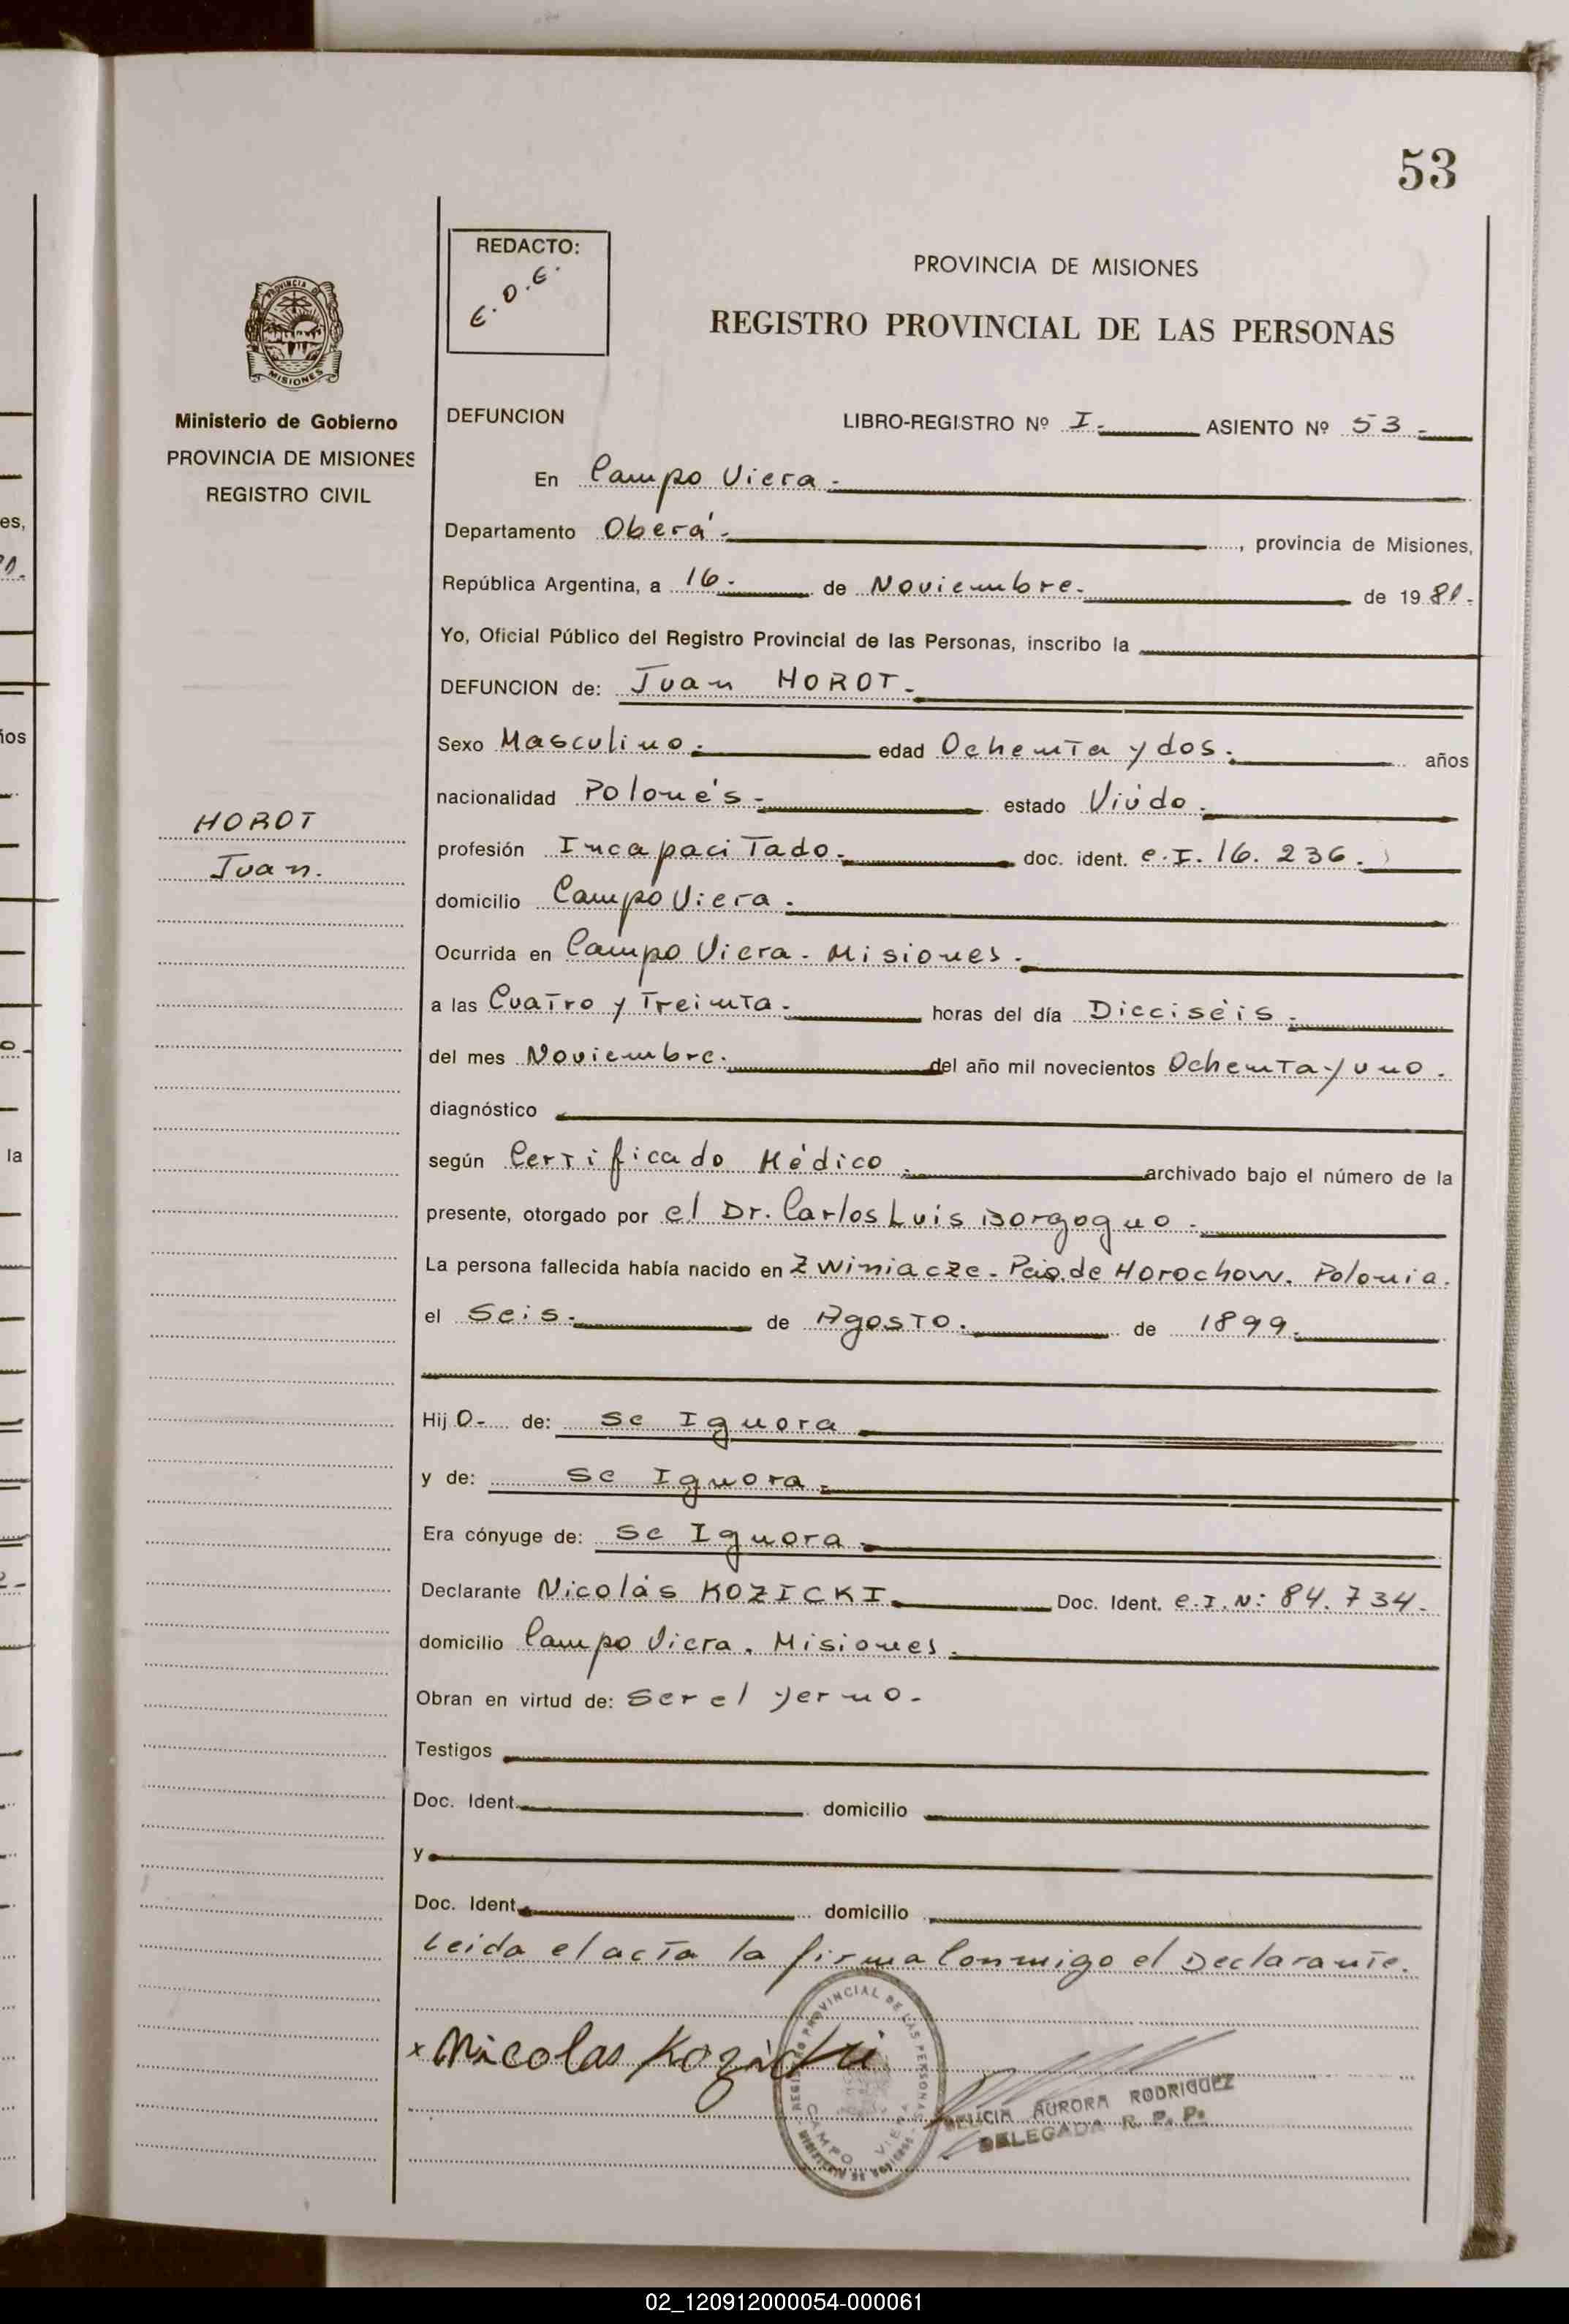 53
REDACTO:
E.O.E.
PROVINCIA DE MISIONES
REGISTRO PROVINCIAL DE LAS PERSONAS
PROVINCIA DE
MISIONES
Ministerio de Gobierno
PROVINCIA DE MISIONES
REGISTRO CIVIL
HOROT
Juan.
DEFUNCION LIBRO-REGISTRO Nº I.- ASIENTO Nº 53.-
En Campo Viera.-
Departamento Oberá.- , provincia de Misiones,
República Argentina, a 16.- de Noviembre.- de 1981.-
Yo, Oficial Público del Registro Provincial de las Personas, inscribo la
DEFUNCION de: Juan HOROT.-
Sexo Masculino.- edad Ochenta y dos.- años
nacionalidad Polonés.- estado Viúdo.-
profesión Incapacitado.- doc. ident. C.I. 16.236.-
domicilio Campo Viera.-
Ocurrida en Campo Viera - Misiones.-
a las Cuatro y Treinta.- horas del día Dieciséis.-
del mes Noviembre.- del año mil novecientos Ochenta y uno.
diagnóstico
según Certificado Médico.- archivado bajo el número de la
presente, otorgado por el Dr. Carlos Luis Borgogno.-
La persona fallecida había nacido en Zwiniacze - Pcio. de Horochow. Polonia.
el Seis.- de Agosto.- de 1899.-
Hij o- de: Se Ignora
y de: Se Ignora.-
Era cónyuge de: Se Ignora.-
Declarante Nicolás KOZICKI.- Doc. Ident. C.I. Nº: 84.734.-
domicilio Campo Viera. Misiones.-
Obran en virtud de: Ser el yerno.-
Testigos
Doc. Ident. domicilio
y
Doc. Ident. domicilio
Leida el acta la firma Conmigo el Declarante.
x Nicolas Kozicki
REGISTRO PROVINCIAL DE LAS PERSONAS
CAMPO VIERA
MINISTERIO DE GOBIERNO
DELICIA AURORA RODRIGUEZ
DELEGADA R. P. P.
es,
ños
la
02_120912000054-000061